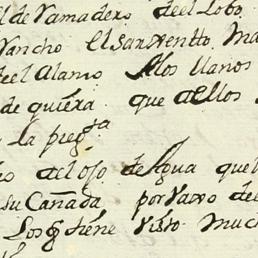 l de Vamadero deel Lobo
Vancho el Sarmentto Ma
eel Alamo Alos llanos
de quiera que aellos
La preg.ta
o del ojo de Agua que
su Cañada por Vaxo de
Los q tiene Visto Much